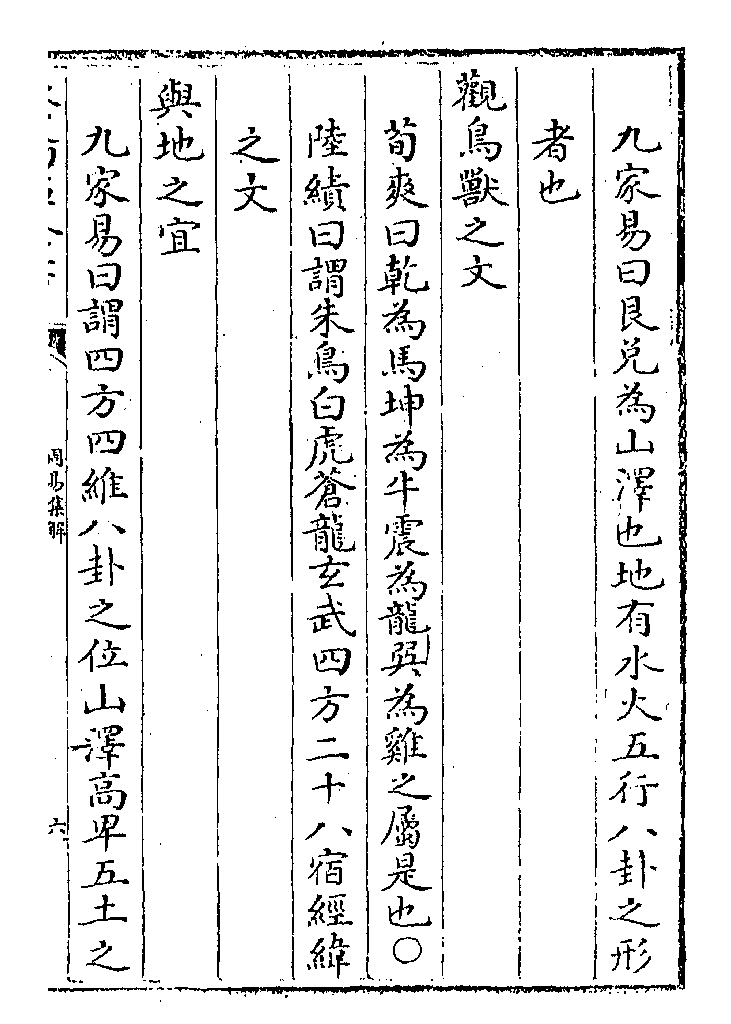 九家易曰艮兌為山澤也地有水火五行八卦之形
者也
觀鳥獸之文
荀爽曰乾為馬坤為牛震為龍巽為雞之屬是也○
陸績曰謂朱鳥白虎蒼龍玄武四方二十八宿經緯
之文
與地之宜
九家易曰謂四方四維八卦之位山澤高卑五土之
周易集解
六